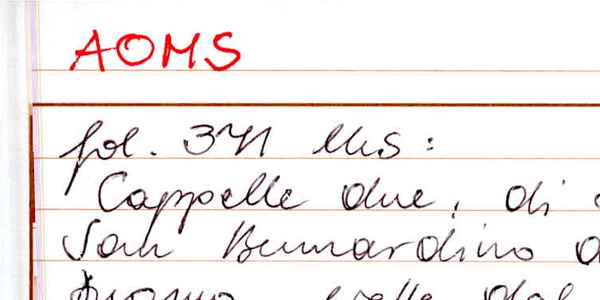 AOMS
fol. 371 Ms:
Cappelle due, di
San Bernardino